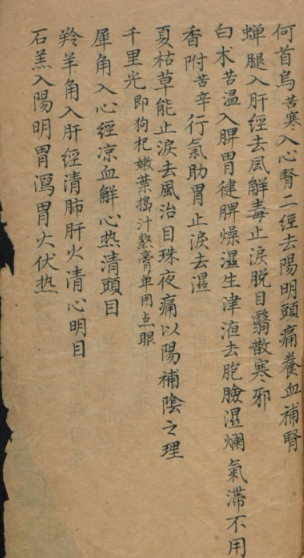 何首烏苦寒入心腎二經去陽明頭痛養血補腎
蟬腿入肝經去風觧毒止淚脱目翳散寒邪
白朮苦温入脾胃健脾燥濕生津洍去胞臉濕爛氣滯不用
香附苦辛行氣助胃止淚去濕
夏枯草能止淚去風治目珠夜痛以陽補陰之理
千里光即狗杞嫩葉搗汁熬膏单用点眼
犀角入心經凉血觧心热清頭目
羚羊角入肝經清肺肝火清心明目
石羔入陽明胃瀉胃火伏热